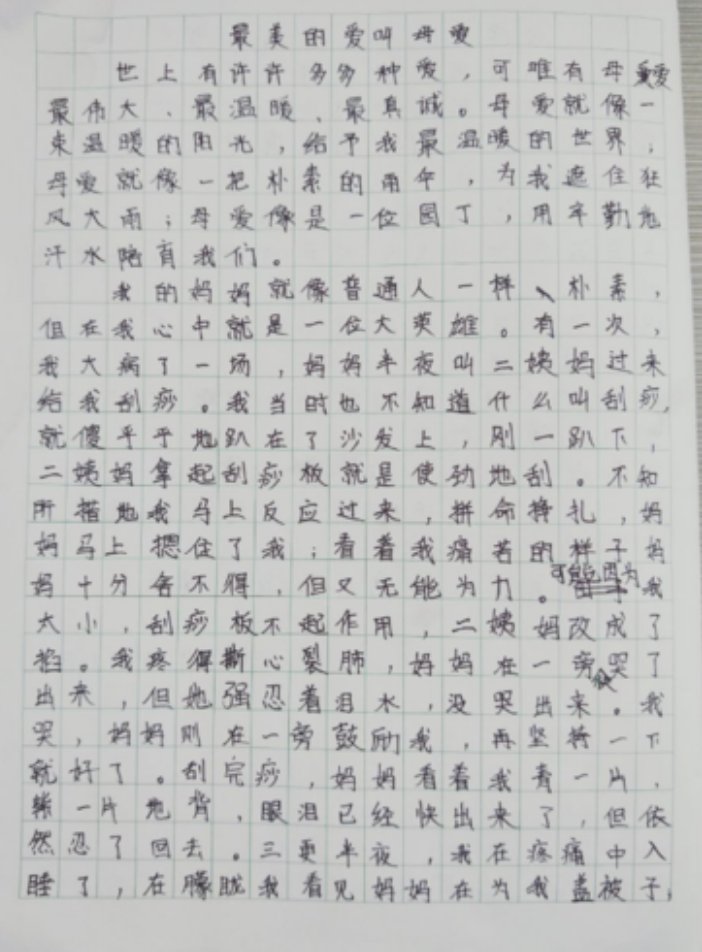 最美的爱叫母爱
世上有许许多多种爱，可唯有母爱
最伟大、最温暖、最真诚。母爱就像一
束温暖的阳光，给予我最温暖的世界；
母爱就像一把朴素的雨伞，为我遮住狂
风大雨；母爱像是一位园丁，用辛勤
汗水陪育我们。
我的妈妈就像普通人一样、朴素，
但在我心中就是一位大英雄。有一次，
我大病了一场，妈妈半夜叫二姨妈过来
给我刮痧。我当时也不知道什么叫刮痧，
就傻乎乎地趴在了沙发上，刚一趴下，
二姨妈拿起刮痧板就是使劲地刮。不知
所措地我马上反应过来，拼命挣扎，妈
妈马上摁住了我；看着我痛苦的样子妈
妈十分舍不得，但又无能为力。可能因为我
太小，刮痧板不起作用，二姨妈改成了
掐。我疼得撕心裂肺，妈妈在一旁哭了
出来，但她强忍着泪水，没哭出来。我
哭，妈妈则在一旁鼓励我，再坚持一下
就好了。刮完痧，妈妈看着我青一片，
紫一片地背，眼泪已经快出来了，但依
然忍了回去。三更半夜，我在疼痛中入
睡了，在朦胧我看见妈妈在为我盖被子，